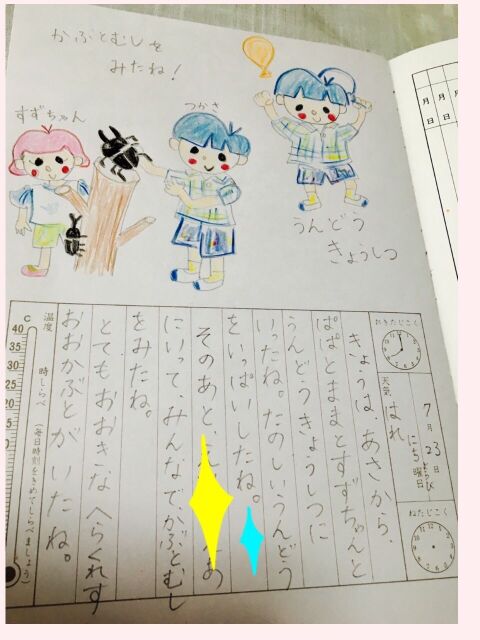 かぶとむしを
みたね!
すずちゃん
つかさ
うんどう
きょうしつ
月 日
月 日
おきたじこく
7月23日
にち曜日
天気 はれ
ねたじこく
きょうは、あさから、
ぱぱとままとすずちゃんと
うんどうきょうしつに
いったね。たのしいうんどう
をいっぱいしたね。
そのあと、
にいって、みんなで、かぶとむし
をみたね。
とてもおおきなへらくれす
おおかぶとがいたね。
温度 時しらべ (毎日時刻をきめてしらべましょう)
C
40
35
30
25
20
15